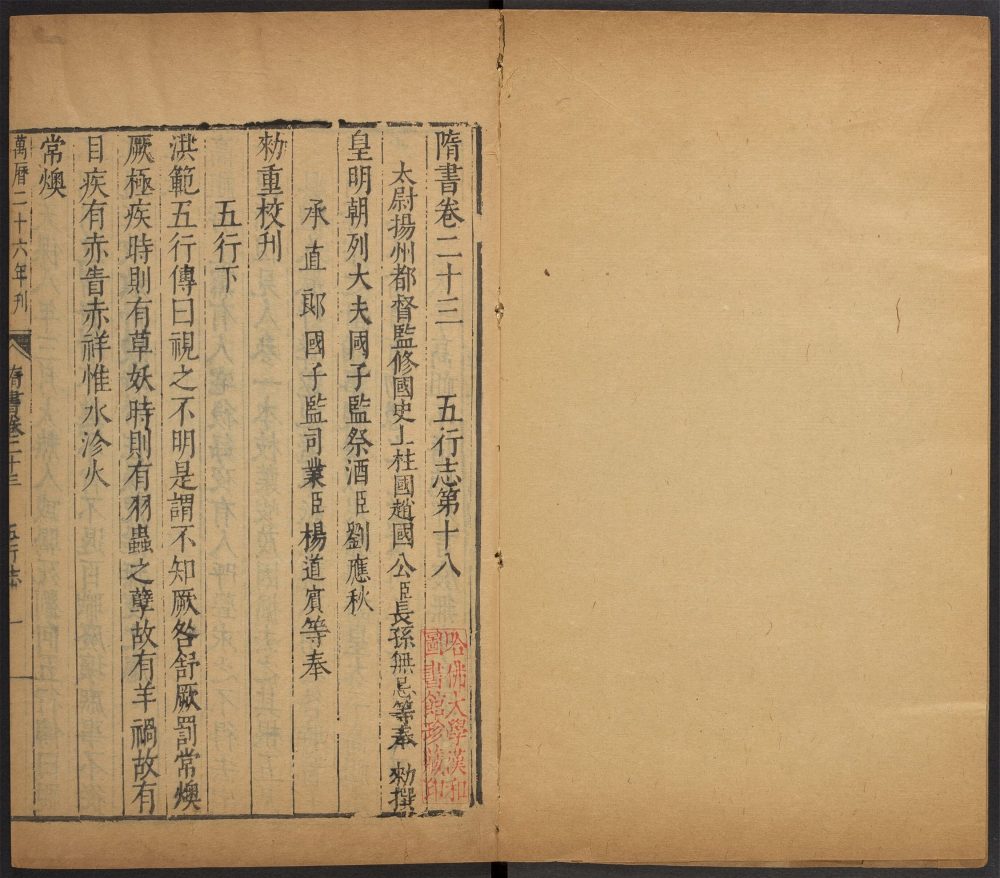 隋書卷二十三 五行志第十八
太尉揚州都督監修國史上柱國趙國公臣長孫無忌等奉 勑撰
皇明朝列大夫國子監祭酒臣劉應秋
承直郎國子監司業臣楊道賓等奉
勑重校刊
五行下
洪範五行傳曰視之不明是謂不知厥咎舒厥罰常燠
厥極疾時則有草妖時則有羽蟲之孽故有羊禍故有
目疾有赤眚赤祥惟水沴火
常燠
萬曆二十六年刊
隋書卷二十三 五行志 一
哈佛大學漢和
圖書館珍藏印